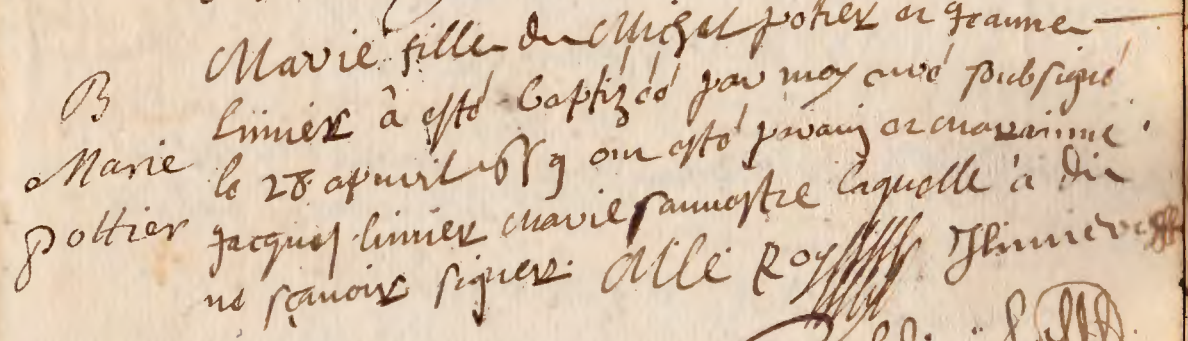 B
Marie
pottier
Marie fille de Michel potier et Jeanne
linier à esté baptizéé par moy curé soubsigné
le 28 apuril ont esté parain et marainne
Jacques linier Marie laquelle à dit
ne sçavoir signer. Allé Roy J linnier